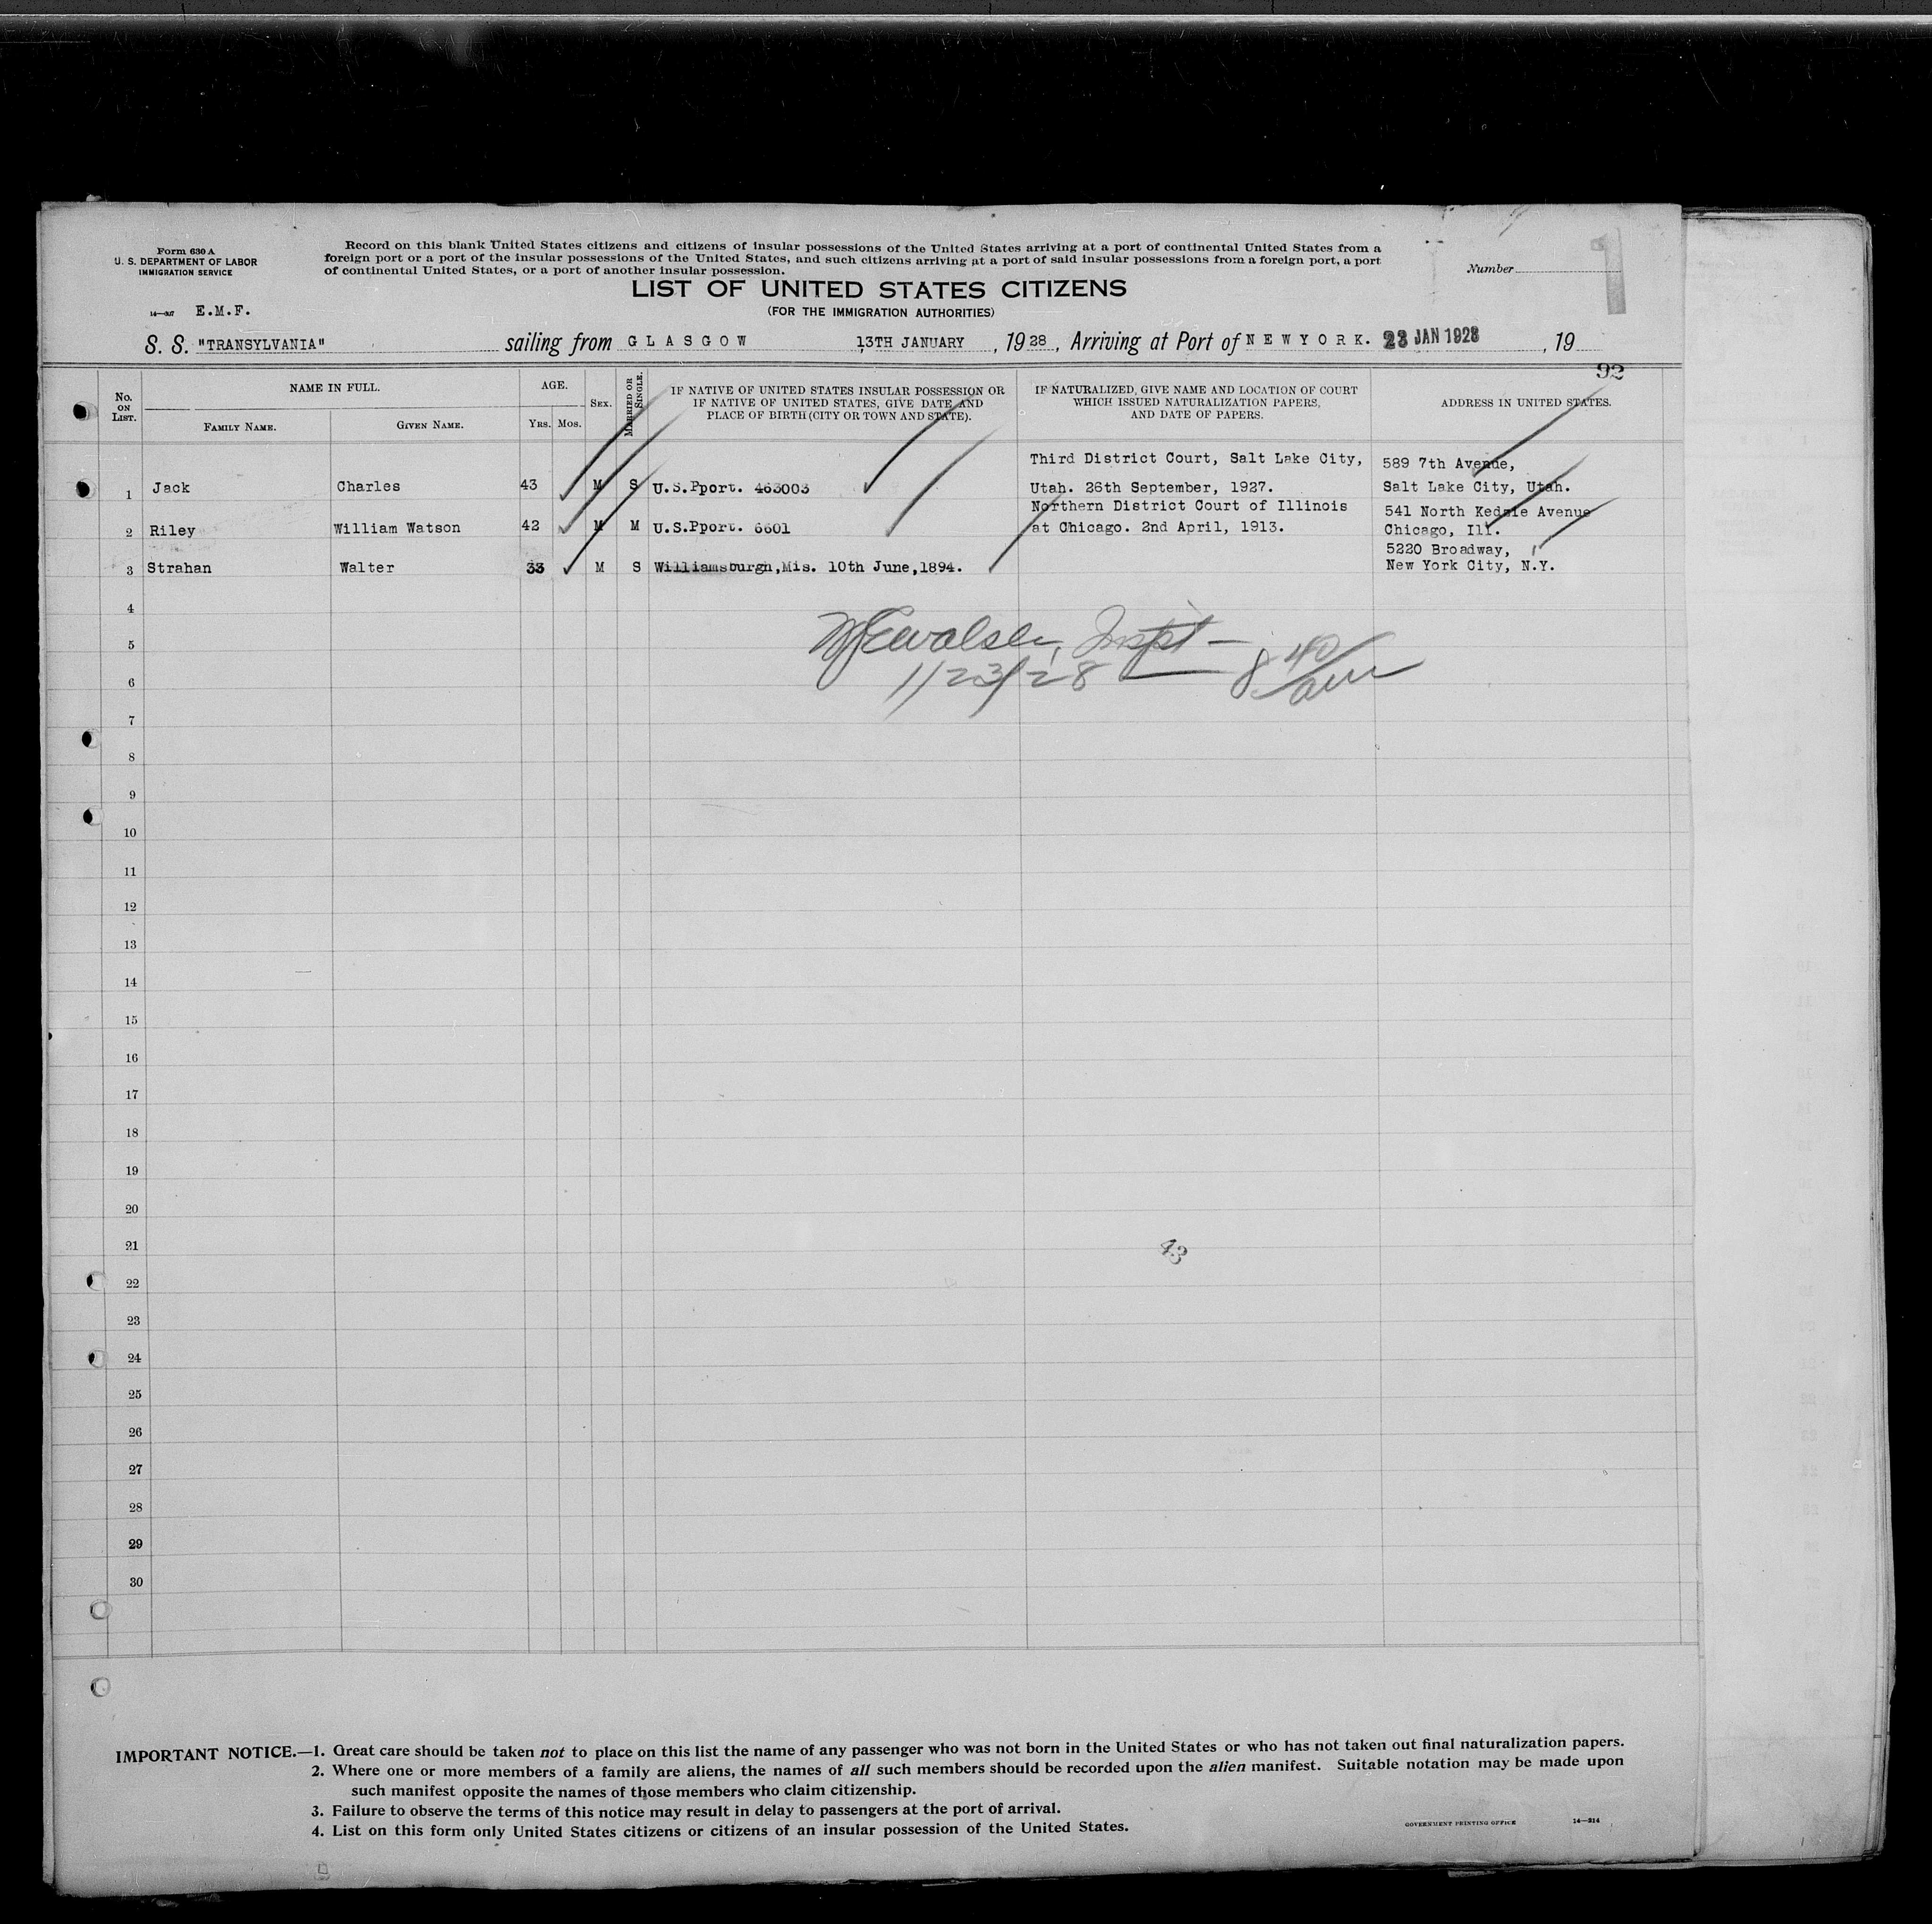 Form 630 A
U. S. DEPARTMENT OF LABOR
IMMIGRATION SERVICE
Record on this blank United States citizens and citizens of insular possessions of the United States arriving at a port of continental United States from a
foreign port or a port of the insular possessions of the United States, and such citizens arriving at a port of said insular possessions from a foreign port, a port
of continental United States, or a port of another insular possession.
Number
1
LIST OF UNITED STATES CITIZENS
(FOR THE IMMIGRATION AUTHORITIES)
E.M.F.
S. S. "TRANSYLVANIA" sailing from GLASGOW 13TH JANUARY, 1928, Arriving at Port of NEWYORK. 23 JAN 1928, 19
92
No. ON LIST. NAME IN FULL. AGE. SEX. MARRIED OR SINGLE. IF NATIVE OF UNITED STATES INSULAR POSSESSION OR IF NATIVE OF UNITED STATES, GIVE DATE AND PLACE OF BIRTH (CITY OR TOWN AND STATE). IF NATURALIZED, GIVE NAME AND LOCATION OF COURT WHICH ISSUED NATURALIZATION PAPERS, AND DATE OF PAPERS. ADDRESS IN UNITED STATES.
FAMILY NAME. GIVEN NAME. YRS. MOS.
Third District Court, Salt Lake City, 589 7th Avenue,
1 Jack Charles 43 M S U.S.Pport. 463003 Utah. 26th September, 1927. Salt Lake City, Utah.
Northern District Court of Illinois 541 North Kedzie Avenue
2 Riley William Watson 42 M M U.S.Pport. 6601 at Chicago. 2nd April, 1913. Chicago, Ill.
5220 Broadway,
3 Strahan Walter 33 M S Williamsburgh,Mis. 10th June,1894. New York City, N.Y.
4
5
Inspt -
6
1/23/28 8 40/am
7
8
9
10
11
12
13
14
15
16
17
18
19
20
21
43
22
23
24
25
26
27
28
29
30
IMPORTANT NOTICE.—1. Great care should be taken not to place on this list the name of any passenger who was not born in the United States or who has not taken out final naturalization papers.
2. Where one or more members of a family are aliens, the names of all such members should be recorded upon the alien manifest. Suitable notation may be made upon
such manifest opposite the names of those members who claim citizenship.
3. Failure to observe the terms of this notice may result in delay to passengers at the port of arrival.
4. List on this form only United States citizens or citizens of an insular possession of the United States.
GOVERNMENT PRINTING OFFICE 14—314